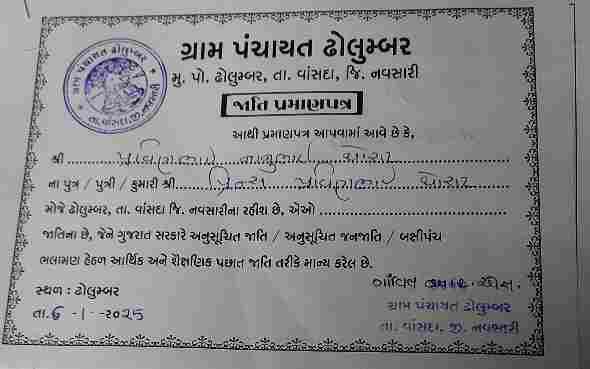 ગ્રામ પંચાયત ઢોલુમ્બર
મુ. પો. ઢોલુમ્બર, તા. વાંસદા, જિ. નવસારી
જાતિ પ્રમાણપત્ર
આથી પ્રમાણપત્ર આપવામાં આવે છે કે,
શ્રી
ના પુત્ર / પુત્રી / કુમારી શ્રી
મોજે ઢોલુમ્બર, તા. વાંસદા જિ. નવસારીના રહીશ છે, એઓ
જાતિના છે, જેને ગુજરાત સરકારે અનુસૂચિત જાતિ / અનુસૂચિત જનજાતિ / બક્ષીપંચ
ભલામણ હેઠળ આર્થિક અને શૈક્ષણિક પછાત જાતિ તરીકે માન્ય કરેલ છે.
સ્થળ : ઢોલુમ્બર
તા. 6 - 1 - ૨૦૨૫
ગ્રામ પંચાયત ઢોલુંબર
તા. વાંસદા, જી. નવસારી
ગ્રામ પંચાયત ઢોલુમ્બર
તા. વાંસદા, જી. નવસારી